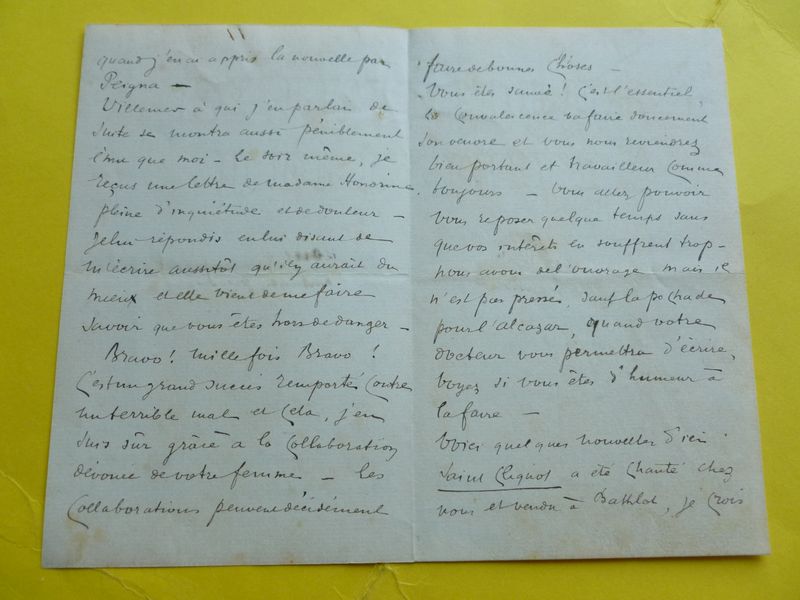 quand j'en ai appris la nouvelle par
Peigna —
Villemer à qui j'en parlai de
suite se montra aussi péniblement
ému que moi — Le soir même, je
reçus une lettre de madame Honorine
pleine d'inquiétude et de douleur —
Je lui répondis en lui disant de
m'écrire aussitôt qu'il y aurait du
mieux et elle vient de me faire
savoir que vous êtes hors de danger —
Bravo ! mille fois Bravo !
C'est un grand succès remporté contre
un terrible mal et cela, j'en
suis sûr grâce à la collaboration
dévouée de votre femme — Les
collaborations peuvent décidément
faire de bonnes choses —
Vous êtes sauvé ! C'est l'essentiel,
la convalescence va faire doucement
son oeuvre et vous nous reviendrez
bien portant et travailleur comme
toujours — Vous allez pouvoir
vous reposer quelque temps sans
que vos intérêts en souffrent trop —
nous avons de l'ouvrage mais il
n'est pas pressé, sauf la pochade
pour l'alcazar, quand votre
docteur vous permettra d'écrire,
voyez si vous êtes d'humeur à
la faire —
Voici quelques nouvelles d'ici
Saint Clignot a été chanté chez
nous et vendu à Bathlot, je crois